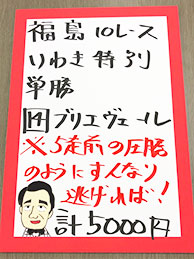 福島10レース
いわき特別
単勝
14ブリエヴェール
※5走前の圧勝
のようにすんなり
逃げれば!
計5000円